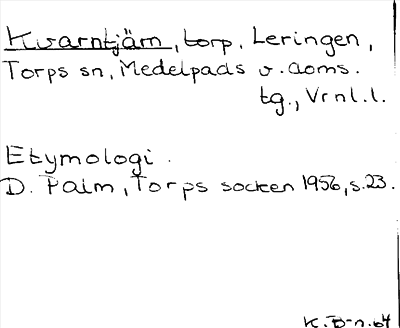 Kvarntjärn, torp, Leringen,
Torps sn, Medelpads v. doms.
tg., Vrnl.l.
Etymologi.
D. Palm, Torps socken 1956, s.23.
K.B-n.64